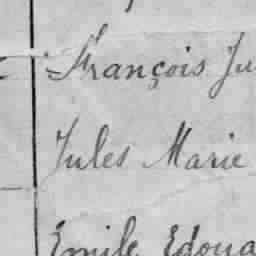 François Ju
Jules Marie
Emile Edoua